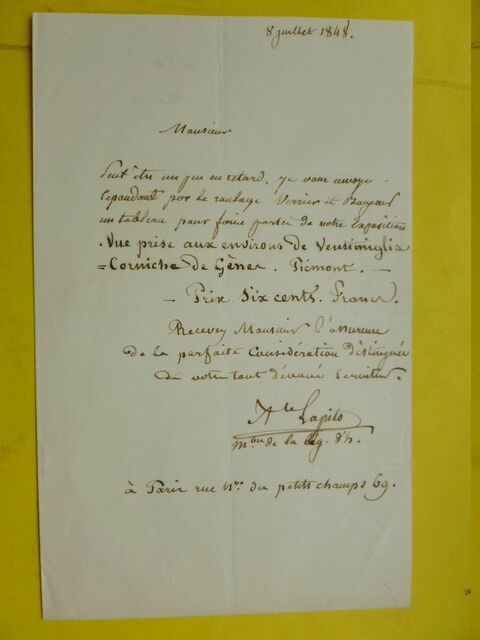 8 juillet 1848.
Monsieur
Peut être un peu en retard, je vous envoye
cependant par le roulage Verrier et
un tableau pour faire partie de votre Exposition
Vue prise aux environs de Ventimiglia
=Corniche de Gênes. Piémont. —
— Prix Six cents. Francs.
Recevez Monsieur l'assurence
de la parfaite Considération distinguée
de votre tout dévoué serviteur.
Ate Lapito
mbre de la lég. d'h.
à Paris rue Nve des petits champs 69.